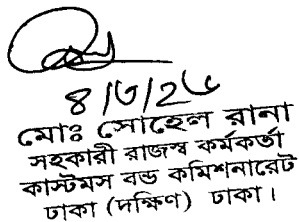 ৪/৩/২৫
মোঃ সোহেল রানা
সহকারী রাজস্ব কর্মকর্তা
কাস্টমস বন্ড কমিশনারেট
ঢাকা (দক্ষিণ) ঢাকা।